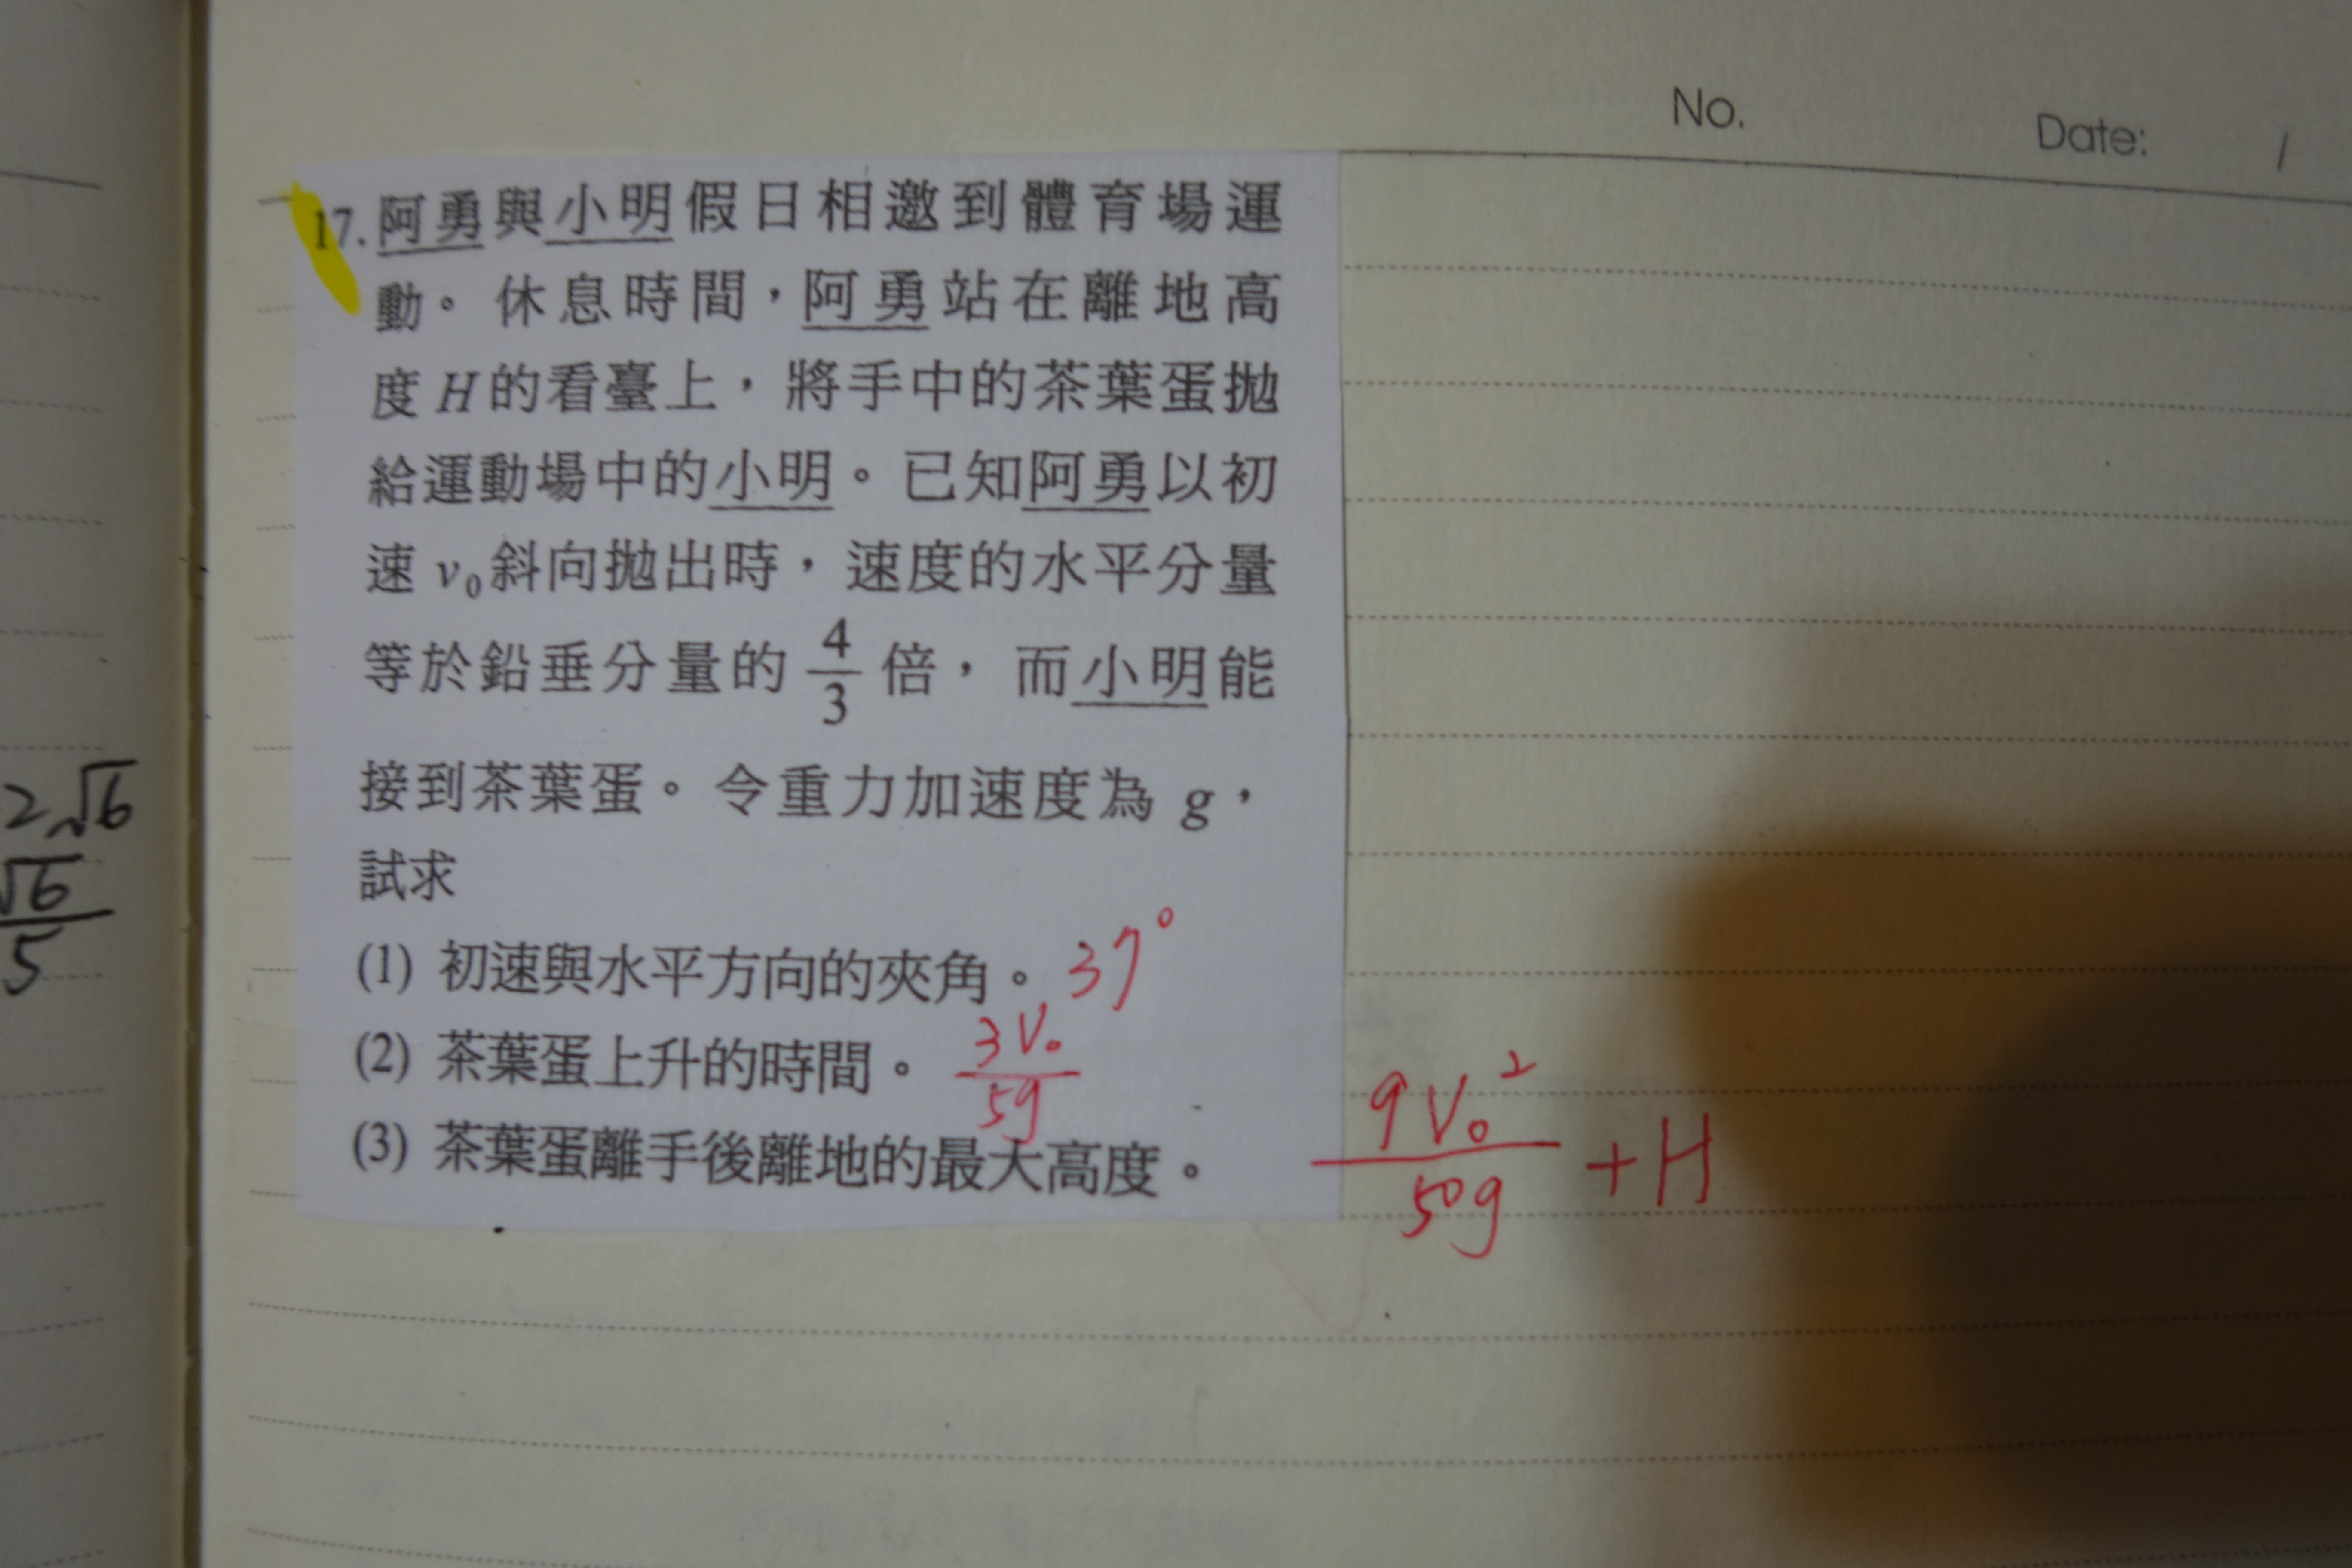 No.
Date: /
17. 阿勇與小明假日相邀到體育場運
動。休息時間，阿勇站在離地高
度 H 的看臺上，將手中的茶葉蛋拋
給運動場中的小明。已知阿勇以初
速 v₀ 斜向拋出時，速度的水平分量
等於鉛垂分量的 4/3 倍，而小明能
接到茶葉蛋。令重力加速度為 g，
試求
(1) 初速與水平方向的夾角。 37°
(2) 茶葉蛋上升的時間。 3V₀/5g
(3) 茶葉蛋離手後離地的最大高度。 9V₀²/50g + H
2√6
√6/5